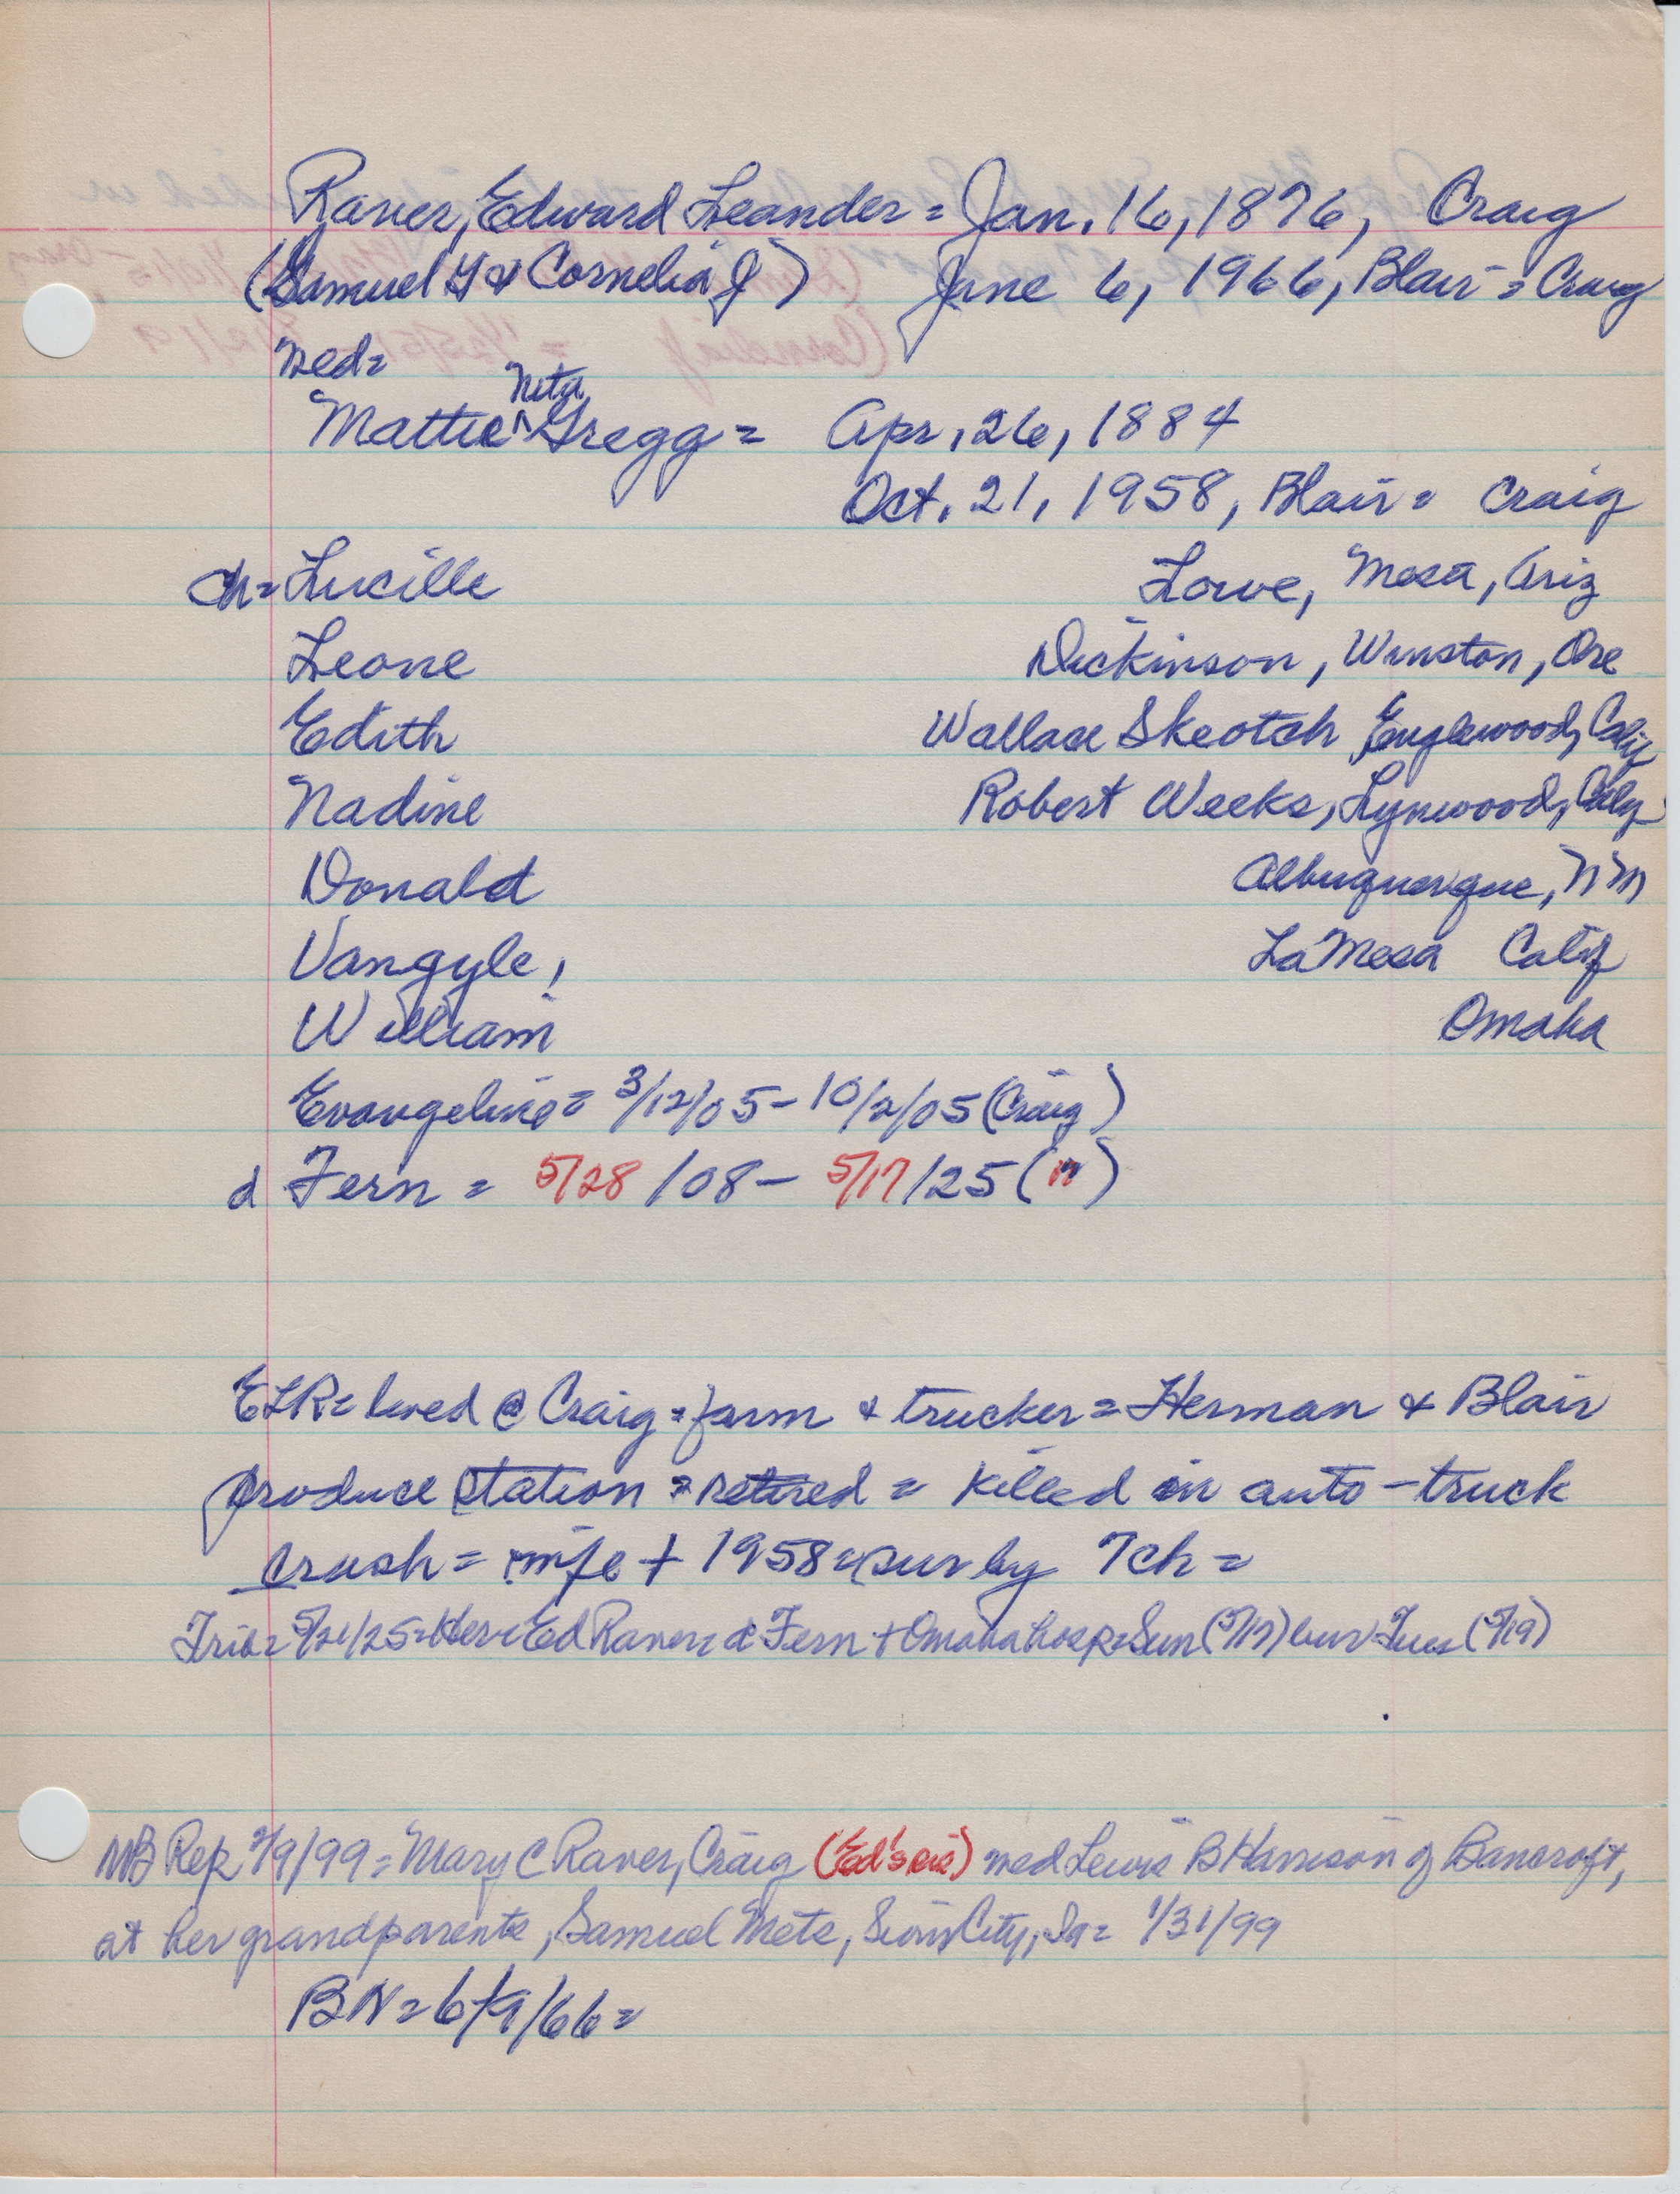 Raver, Edward Leander = Jan. 16, 1876, Craig
(Samuel Y & Cornelia J) June 6, 1966, Blair = Craig
wed =
Neta
Mattie ^ Gregg = Apr. 26, 1884
Oct. 21, 1958, Blair = Craig
ch = Lucille Lowe, Mesa, Ariz
Leone Dickinson, Winston, Ore
Edith Wallace Skeotch, Englewood, Calif
Nadine Robert Weeks, Lynwood, Calif
Donald Albuquerque, NM
Vangyle, La Mesa Calif
William Omaha
Evangeline = 3/12/05 - 10/2/05 (Craig)
d Fern = 5/28/08 - 5/17/25 (")
ELR = lived @ Craig = farm & trucker = Herman & Blair
produce station = retired = killed in auto-truck
crash = wife + 1958 = sur by 7 ch =
Trib = 5/21/25 = Her = Ed Raver = d Fern + Omaha hosp = Sun (5/17) bur = Tues (5/19)
Rep 2/9/99 = Mary C Raver, Craig (Ed's sis) wed Lewis B Harrison of Bancroft,
at her grandparents, Samuel Metz, Sioux City, Ia = 1/31/99
BN = 6/9/66 =